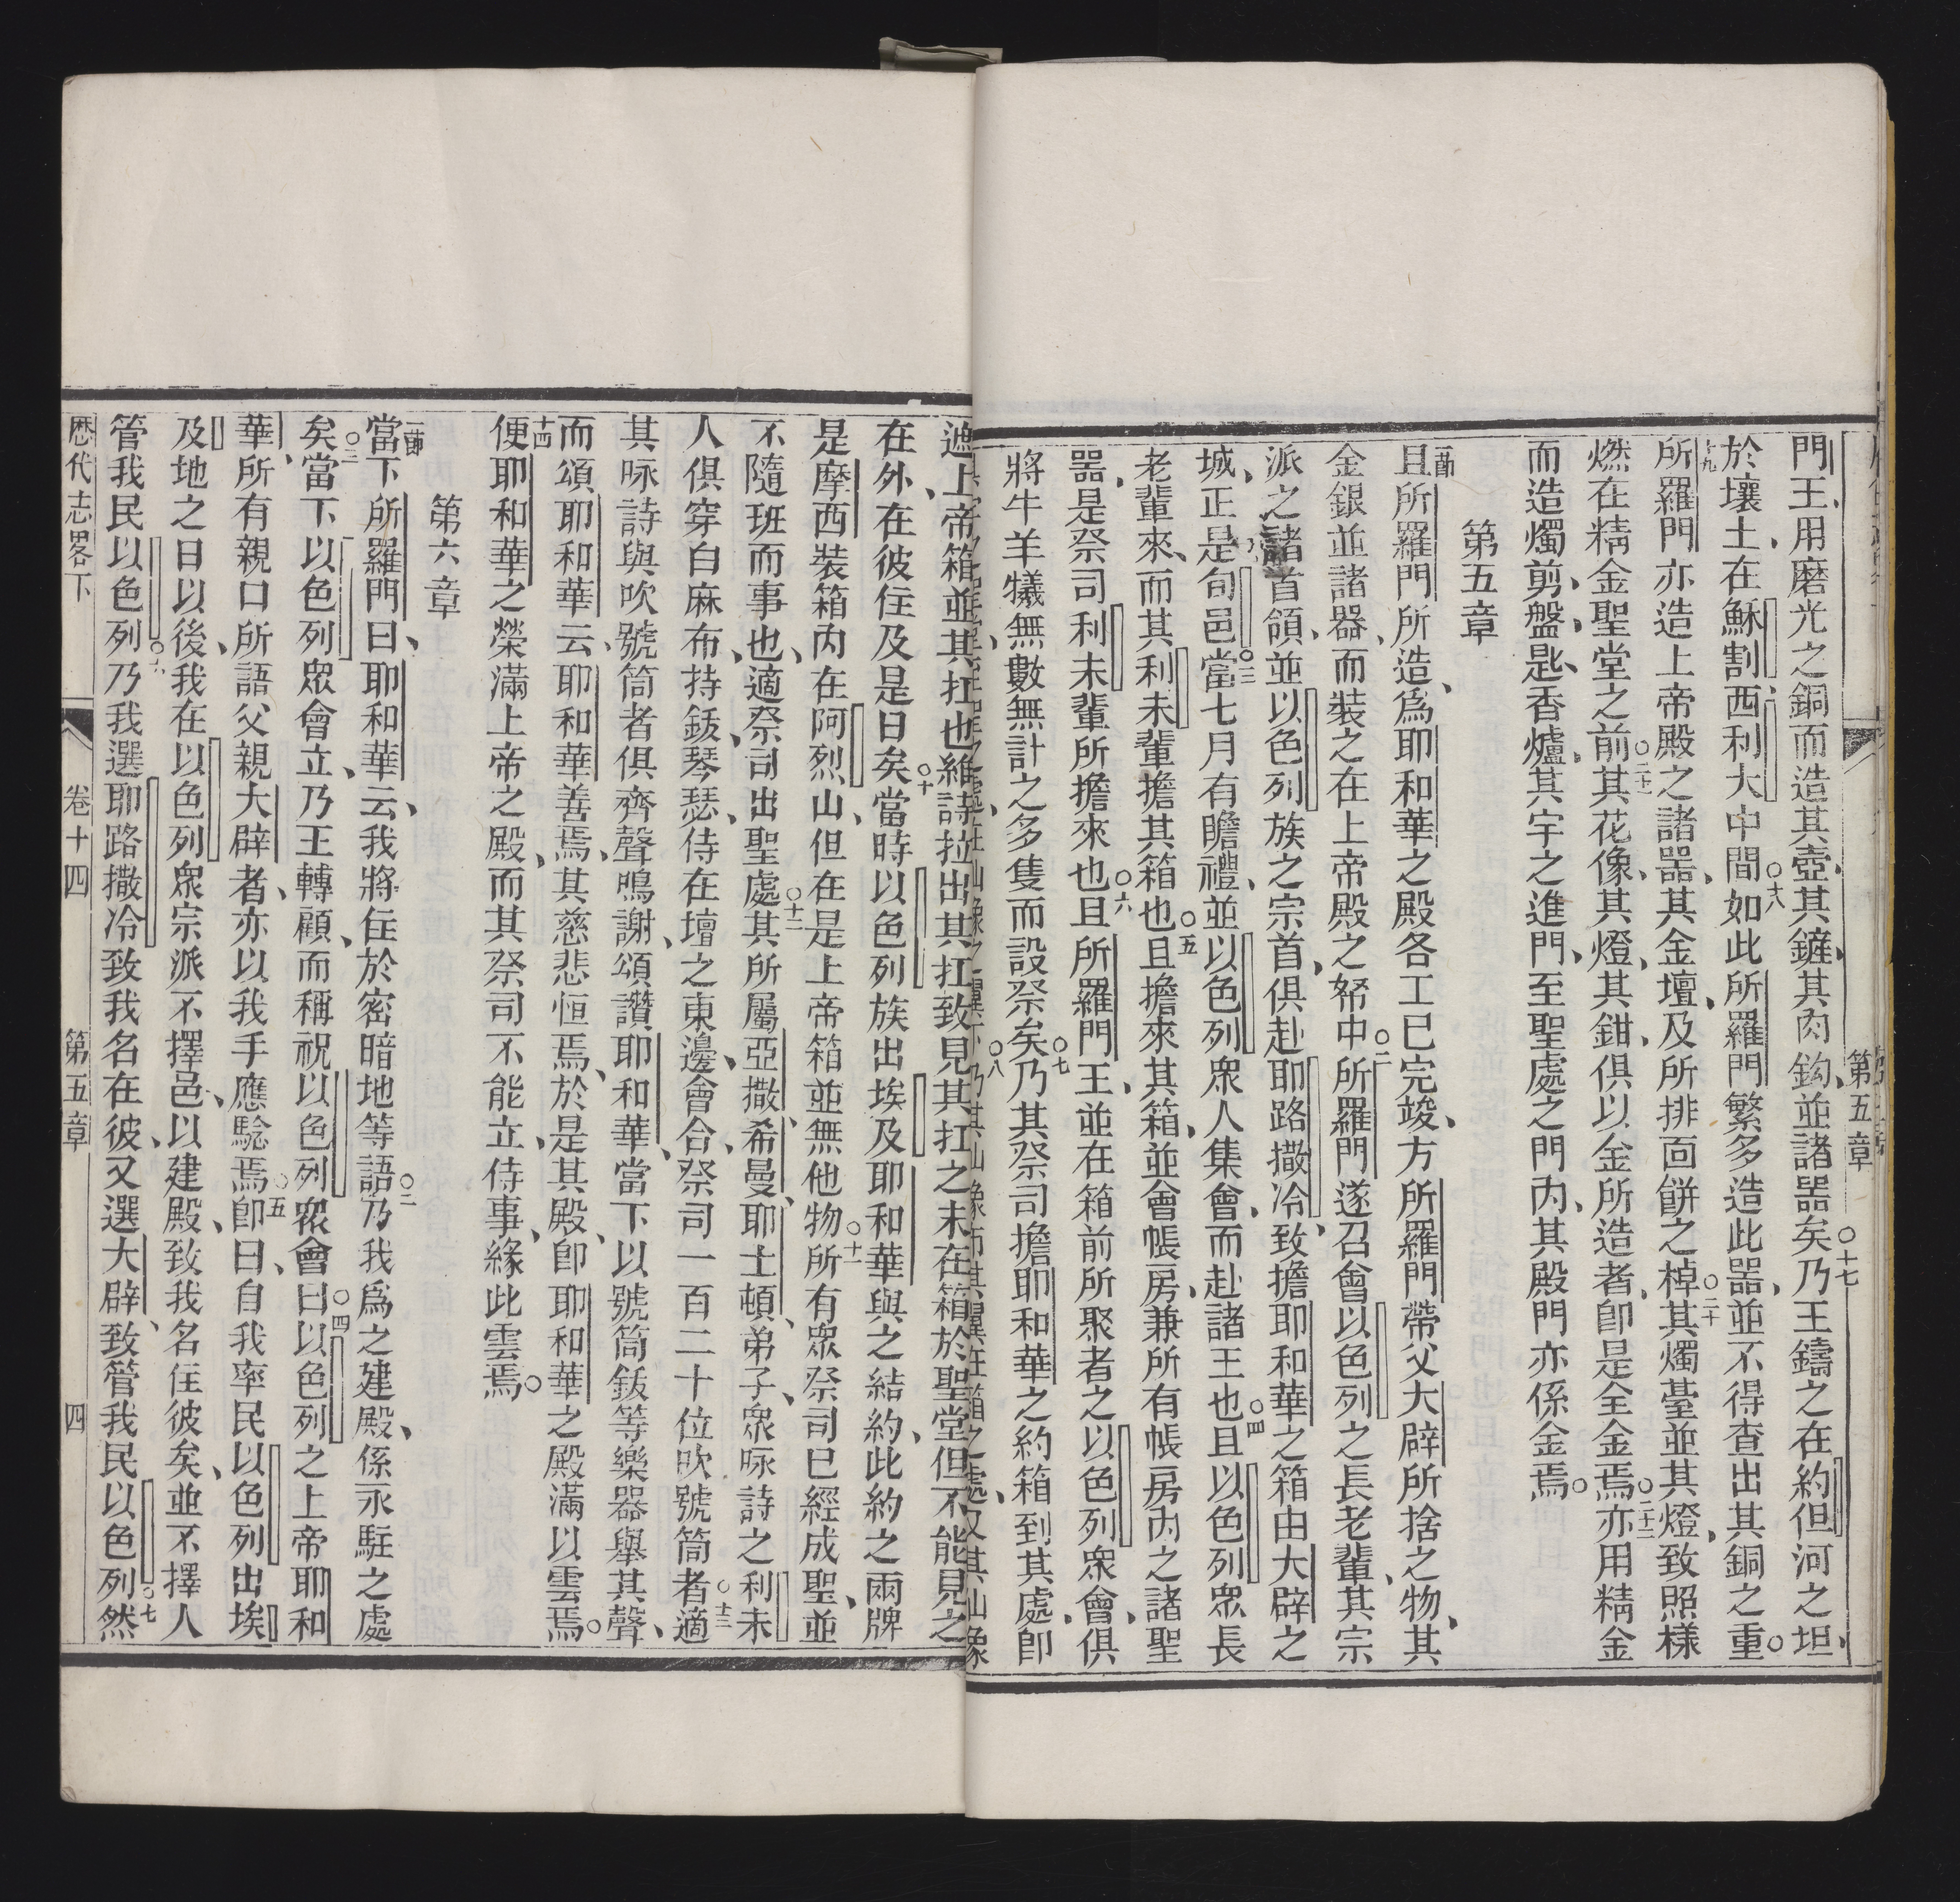 第五章
門王用磨光之銅而造其壺其鏟其肉鈎並諸噐矣○十七乃王鑄之在約但河之坦
於壤土在穌割西利大中間○十八如此所羅門繁多造此噐並不得查出其銅之重○
十九所羅門亦造上帝殿之諸噐其金壇及所排面餅之棹○二十其燭臺並其燈致照樣
燃在精金聖堂之前○二十一其花像其燈其鉗俱以金所造者卽是全金焉○二十二亦用精金
而造燭剪盤匙香爐其宇之進門至聖處之門內其殿門亦係金焉○
第五章
一節且所羅門所造爲耶和華之殿各工已完竣方所羅門帶父大辟所捨之物其
金銀並諸器而裝之在上帝殿之帑中○二所羅門遂召會以色列之長老輩其宗
派之諸首領並以色列族之宗首俱赴耶路撒冷致擔耶和華之箱由大辟之
城正是旬邑○三當七月有瞻禮並以色列衆人集會而赴諸王也○四且以色列衆長
老輩來而其利未輩擔其箱也○五且擔來其箱並會帳房兼所有帳房內之諸聖
噐是祭司利未輩所擔來也○六且所羅門王並在箱前所聚者之以色列衆會俱
將牛羊犧無數無計之多隻而設祭矣○七乃其祭司擔耶和華之約箱到其處卽
遮上帝箱並其扛也維詩拉出其扛致見其扛之末在箱於聖堂但不能見之
在外在彼住及是日矣○十當時以色列族出埃及耶和華與之結約此約之兩牌
是摩西裝箱內在阿烈山但在是上帝箱並無他物○十一所有衆祭司已經成聖並
不隨班而事也適祭司出聖處○十二其所屬亞撒希曼耶土頓弟子衆咏詩之利未
人俱穿白麻布持鈸琴瑟侍在壇之東邊會合祭司一百二十位吹號筒者○十三適
其咏詩與吹號筒者俱齊聲鳴謝頌讚耶和華當下以號筒鈸等樂器舉其聲
而頌耶和華云耶和華善焉其慈悲恒焉於是其殿卽耶和華之殿滿以雲焉○
十四便耶和華之榮滿上帝之殿而其祭司不能立侍事緣此雲焉○
第六章
一節當下所羅門曰耶和華云我將住於密暗地等語○二乃我爲之建殿係永駐之處
矣○三當下以色列衆會立乃王轉顧而稱祝以色列衆會曰○四以色列之上帝耶和
華所有親口所語父親大辟者亦以我手應驗焉○五卽曰自我率民以色列出埃
及地之日以後我在以色列衆宗派不擇邑以建殿致我名住彼矣並不擇人
管我民以色列○六乃我選耶路撒冷致我名在彼又選大辟致管我民以色列○七然
歷代志畧下 卷十四 第五章 四